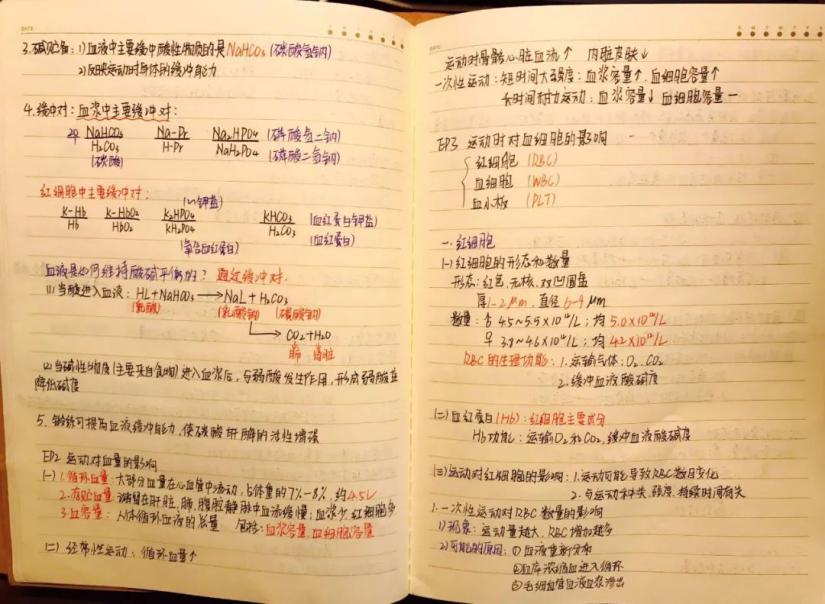 3.碱贮备：1)血液中主要缓冲酸性物质的是NaHCO3 (碳酸氢钠)
2)反映运动时身体的缓冲能力
4.缓冲对：血浆中主要缓冲对：
NaHCO3/H2CO3 Na-Pr/H-Pr Na2HPO4/NaH2PO4 (磷酸氢二钠)
(碳酸) (磷酸二氢钠)
红细胞中主要缓冲对：
K-Hb/Hb K-HbO2/HbO2 K2HPO4/KH2PO4 KHCO3/H2CO3 (血红蛋白钾盐)
(氧合血红蛋白) (血红蛋白)
血液是如何维持酸碱平衡的？通过缓冲对.
(1)当酸进入血液：HL+NaHCO3→NaL+H2CO3
(乳酸) (乳酸钠) (碳酸)
→CO2+H2O
肺 肾脏
(2)当碱性物质(主要来自食物)进入血浆后，与弱酸发生作用，形成弱酸盐
降低碱度
5.锻炼可提高血液缓冲能力，使碳酸酐酶的活性增强
EP2 运动对血量的影响
(一)1.循环血量：大部分血量在心血管中流动，占体重的7%-8%，约4.5L
2.存贮血量：潴留在肝脏,肺,腹腔静脉中血流缓慢；血浆少,红细胞多
3.血容量：人体循环血液的总量 包括：血浆容量,血细胞容量
(二)经常性运动：循环血量↑
运动时骨骼心脏血流↑ 内脏皮肤↓
一次性运动：短时间大强度：血浆容量↑,血细胞容量↑
长时间耐力运动：血浆容量↓ 血细胞容量一
EP3 运动时对血细胞的影响
红细胞 (RBC)
血细胞 (WBC)
血小板 (PLT)
一.红细胞
(一)红细胞的形态和数量
形态：红色,无核,双凹圆盘
厚1-2μm,直径6-9μm
数量：♂ 4.5~5.5×10¹²/L；均5.0×10¹²/L
♀ 3.8~4.6×10¹²/L；均4.2×10¹²/L
RBC的生理功能：1.运输气体：O2、CO2
2.缓冲血液酸碱度
(二)血红蛋白(Hb)：红细胞主要成分
Hb功能：运输O2和CO2,缓冲血液酸碱度
(三)运动对红细胞的影响：1.运动可能导致RBC数目变化
2.与运动种类、强度、持续时间有关
1.一次性运动对RBC数量的影响
1)现象：运动量越大,RBC增加越多
2)可能的原因：①血液重新分布
②血库浓缩血进入循环
③毛细血管血液血浆渗出